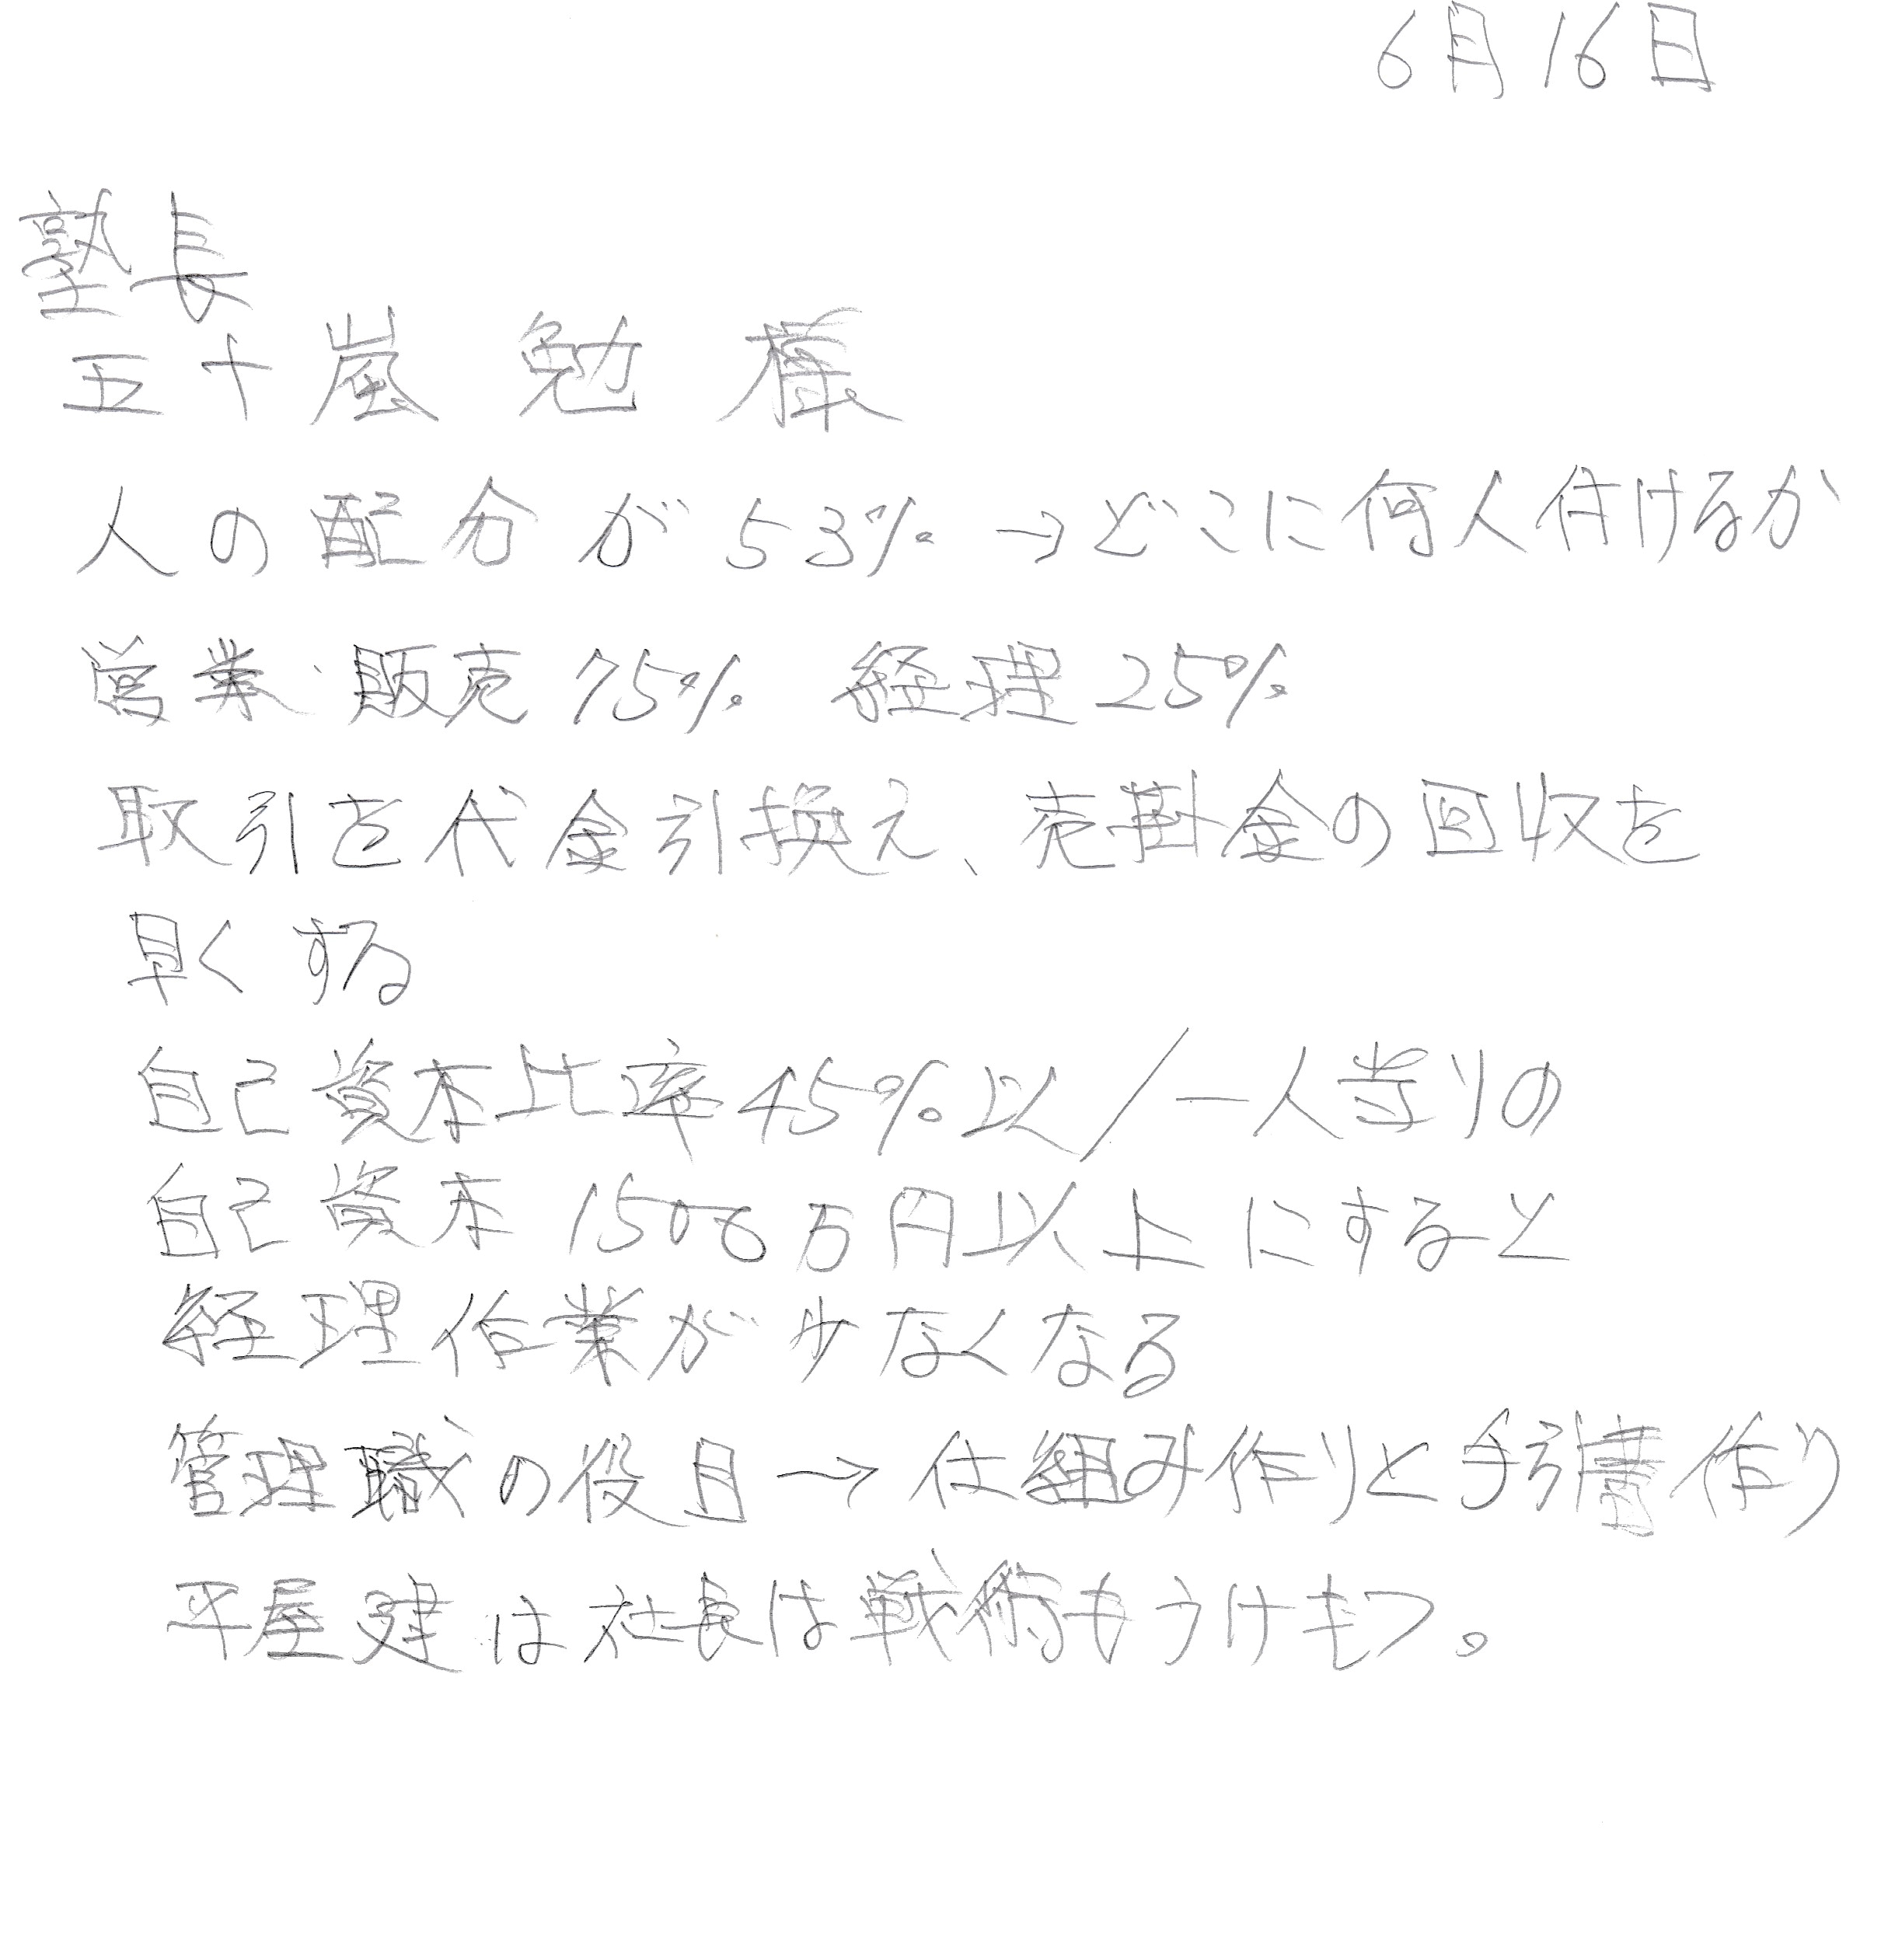 6月16日
塾長
五十嵐 勉 様
人の配分が53%→どこに何人付けるか
営業・販売 75% 経理 25%
取引を代金引換え、売掛金の回収を
早くする
自己資本比率45%以/一人当りの
自己資本1500万円以上にすると
経理作業が少なくなる
管理職の役目→仕組み作りと手引書作り
平屋建は社長は戦術もうけもつ。